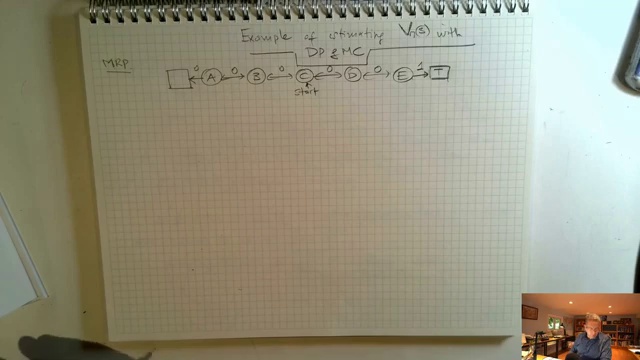 Example of estimating Vπ(s) with
DP & MC
MRP
0 0 0 0 0 1
A B C D E T
Start